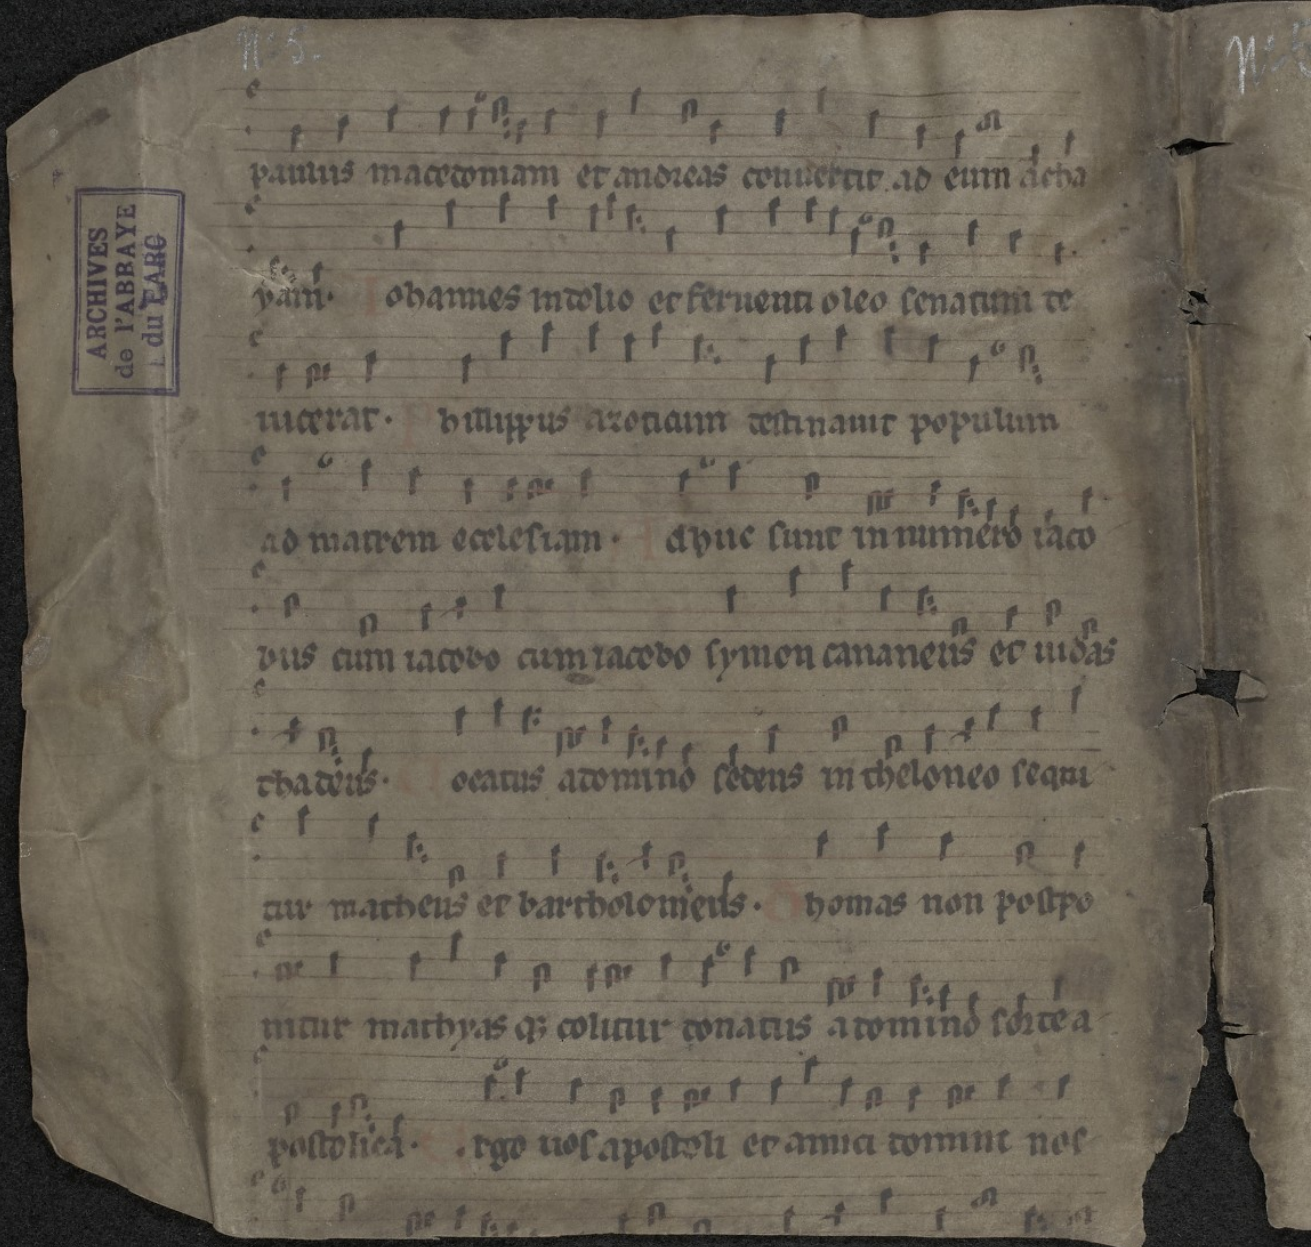 No 5.
paulus macedoniam et andreas conuertit ad eum acha
yam. Iohannes in dolio et feruenti oleo senatum de
uicerat. Phillippus azoticum destinauit populum
ad matrem ecclesiam. Adhuc sunt in numero iaco
bus cum iacobo cum iacobo symon cananeus et iudas
thadeus. Vocatus a domino sedens in theloneo sequi
tur matheus et bartholomeus. Thomas non postpo
nitur mathyas q; colitur donatus a domino sorte a
postolica. Ergo uos apostoli et amici domini nos
ARCHIVES
de l'ABBAYE
du PARC